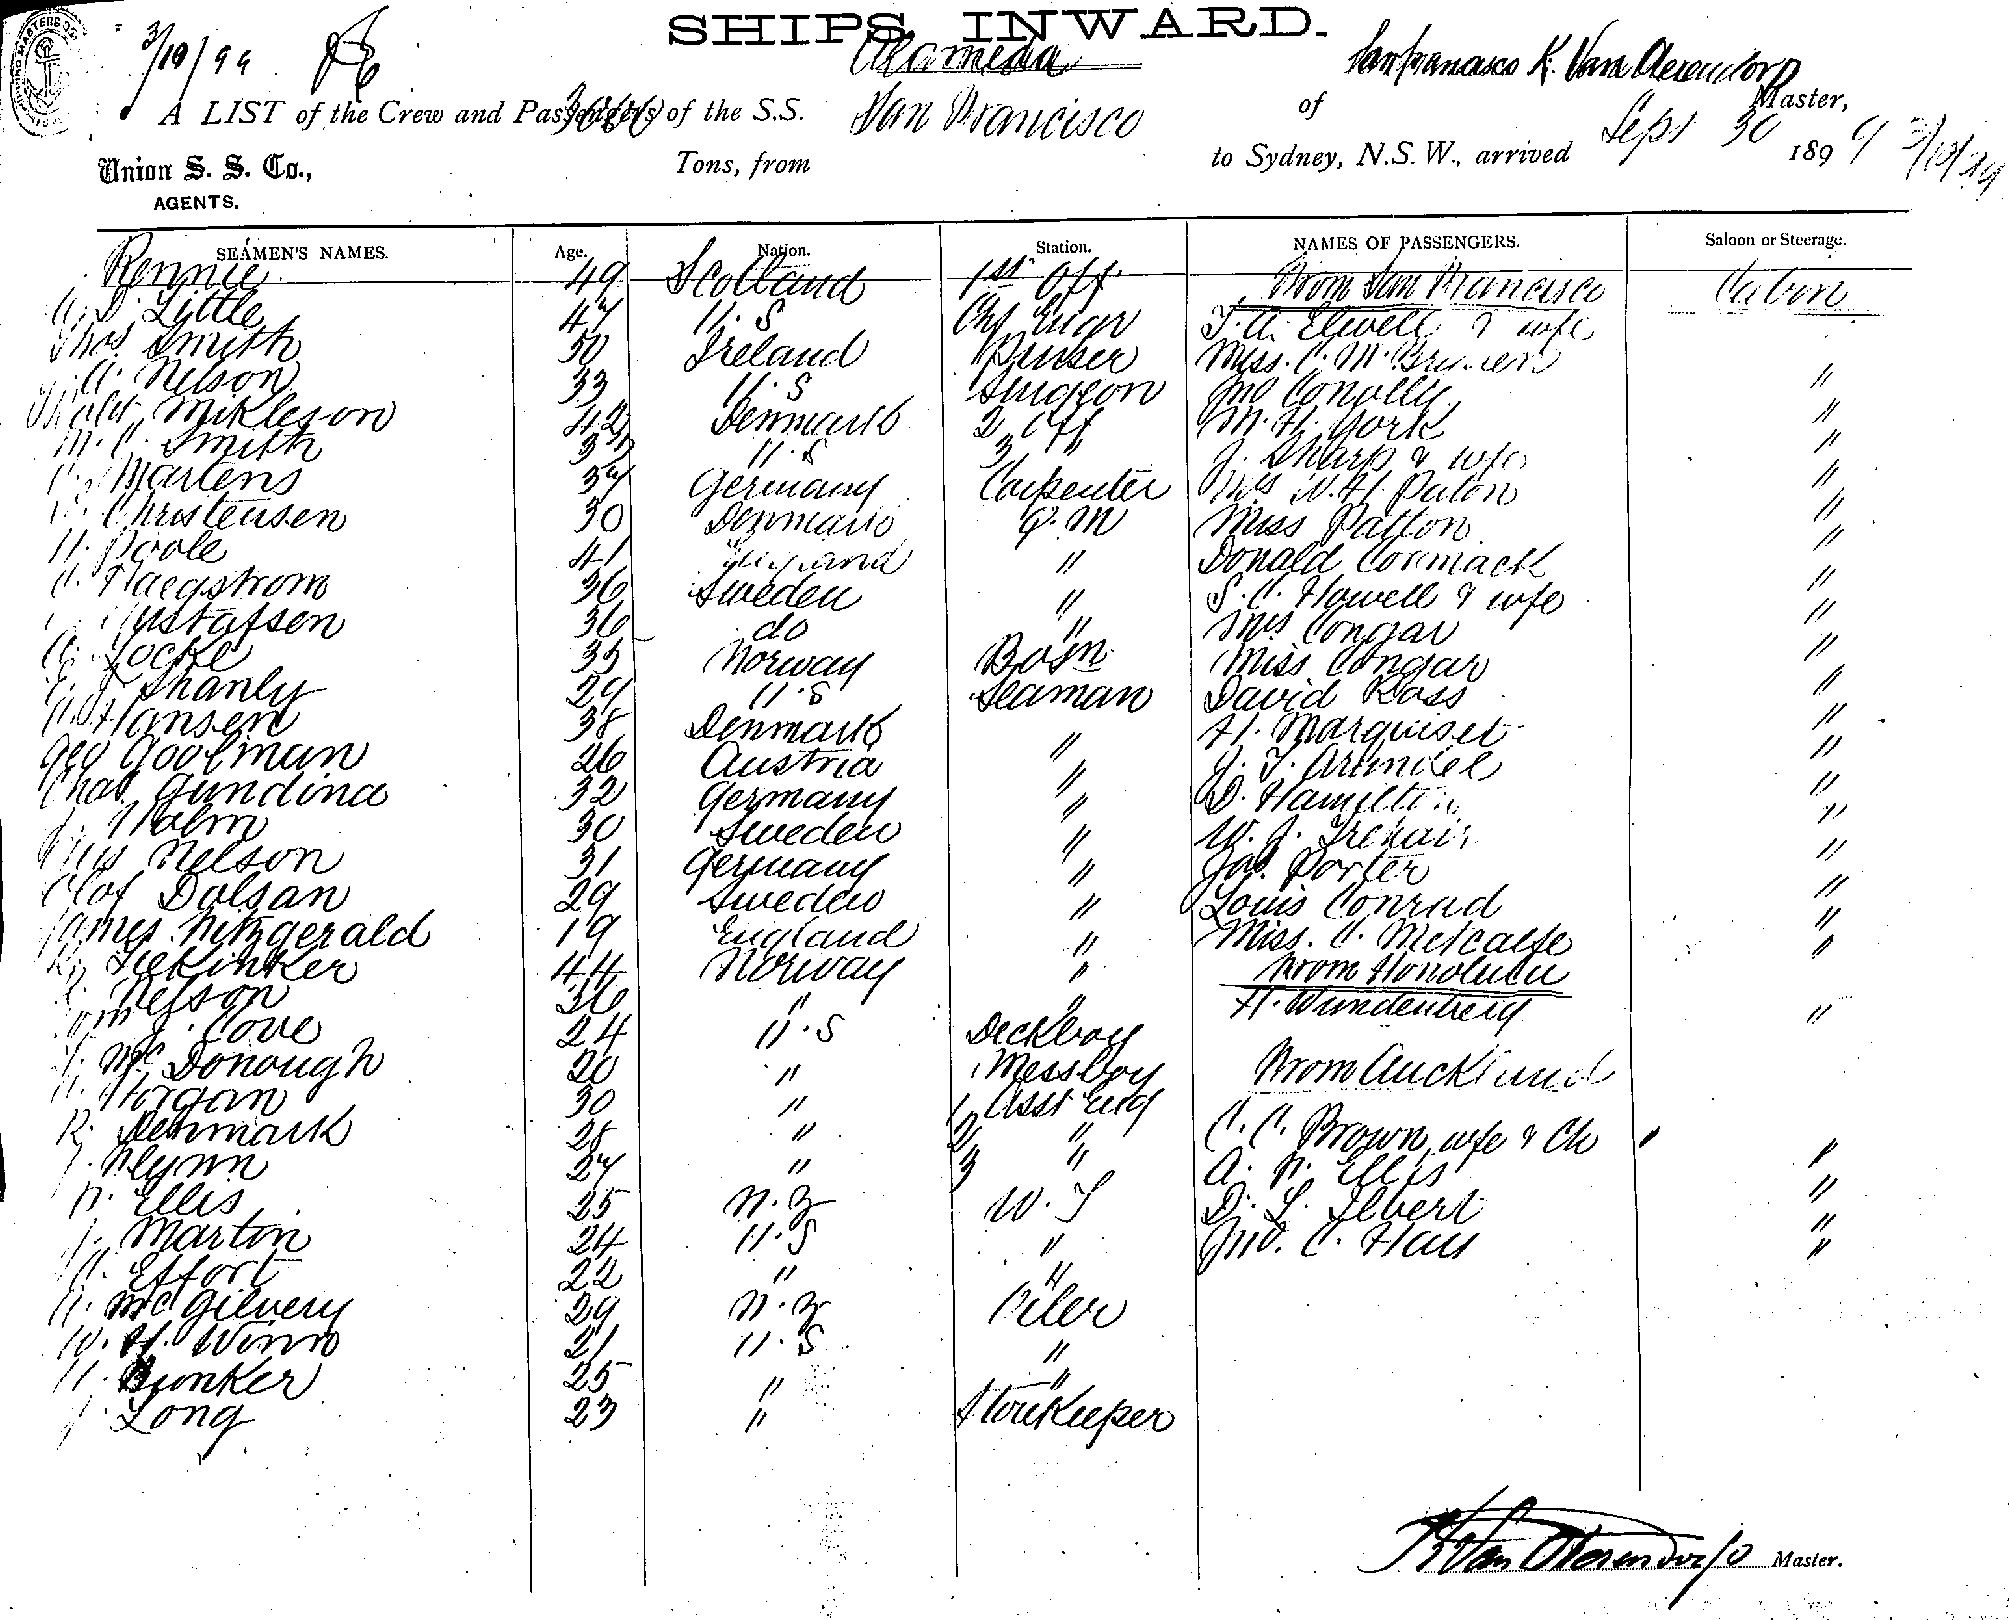 SHIPS INWARD.
3/10/99 Alameda San Francisco K. Van Oterendorp
A LIST of the Crew and Passengers of the S.S. San Francisco of Master,
Union S. S. Co., Tons, from to Sydney, N.S.W., arrived Sept 30 1899 3/10/99
AGENTS.
SEAMEN'S NAMES. Age. Nation. Station. NAMES OF PASSENGERS. Saloon or Steerage.
Rennie 49 Scotland 1st Off From San Francisco Cabin
Little 47 U.S Chf Engr Elwell & wife
Thos Smith 50 Ireland Purser Miss. C. M.
A. Nelson 33 U.S Surgeon Jno Conolly "
Mikleson 42 Denmark 2 Off M. H. York "
M. C. Smith U.S 3 " J. Sharp & wife "
Martens 37 Germany Carpenter Mrs W. H. Paton "
Christensen 30 Denmark Q. M Miss Patton "
H. Poole 41 " Donald Cormack "
Haegstrom 36 Sweden " S. C. Howell & wife "
Gustafsen 36 do " Mrs Congar "
Locke 35 Norway Bosn Miss Congar "
Shanly 29 U.S Seaman David Ross "
Hansen 38 Denmark " H. Marquiset "
Geo Goolman 26 Austria " Arundel "
Chas. Gundina 32 Germany " D. Hamilton "
Malm 30 Sweden " W. J. "
Nelson 31 Germany " Jas. Porter "
Olof Dalsan 29 Sweden " Louis Conrad "
James Fitzgerald 19 England " Miss. C. Metcalfe "
44 Norway " From Honolulu
Nelson 36 " " H. Wundenberg "
J. Cove 24 U.S Deckboy
J. McDonough 20 " Messboy From Auckland
Horgan 30 " 1 Asst Eng
R. Denmark 28 " 2 " C. C. Brown, wife & Ch "
J. Flynn 27 " 3 " A. N. Ellis "
N. Ellis 25 N.Z W. T D. L. Ilbert "
J. Martin 24 U.S " Jno. C. Hall "
Effort 22 " "
McGilvery 29 N.Z Oiler
W. H. Winn 21 U.S "
H. Bunker 25 " "
J. Long 23 " Storekeeper
K Van Oterendorp Master.